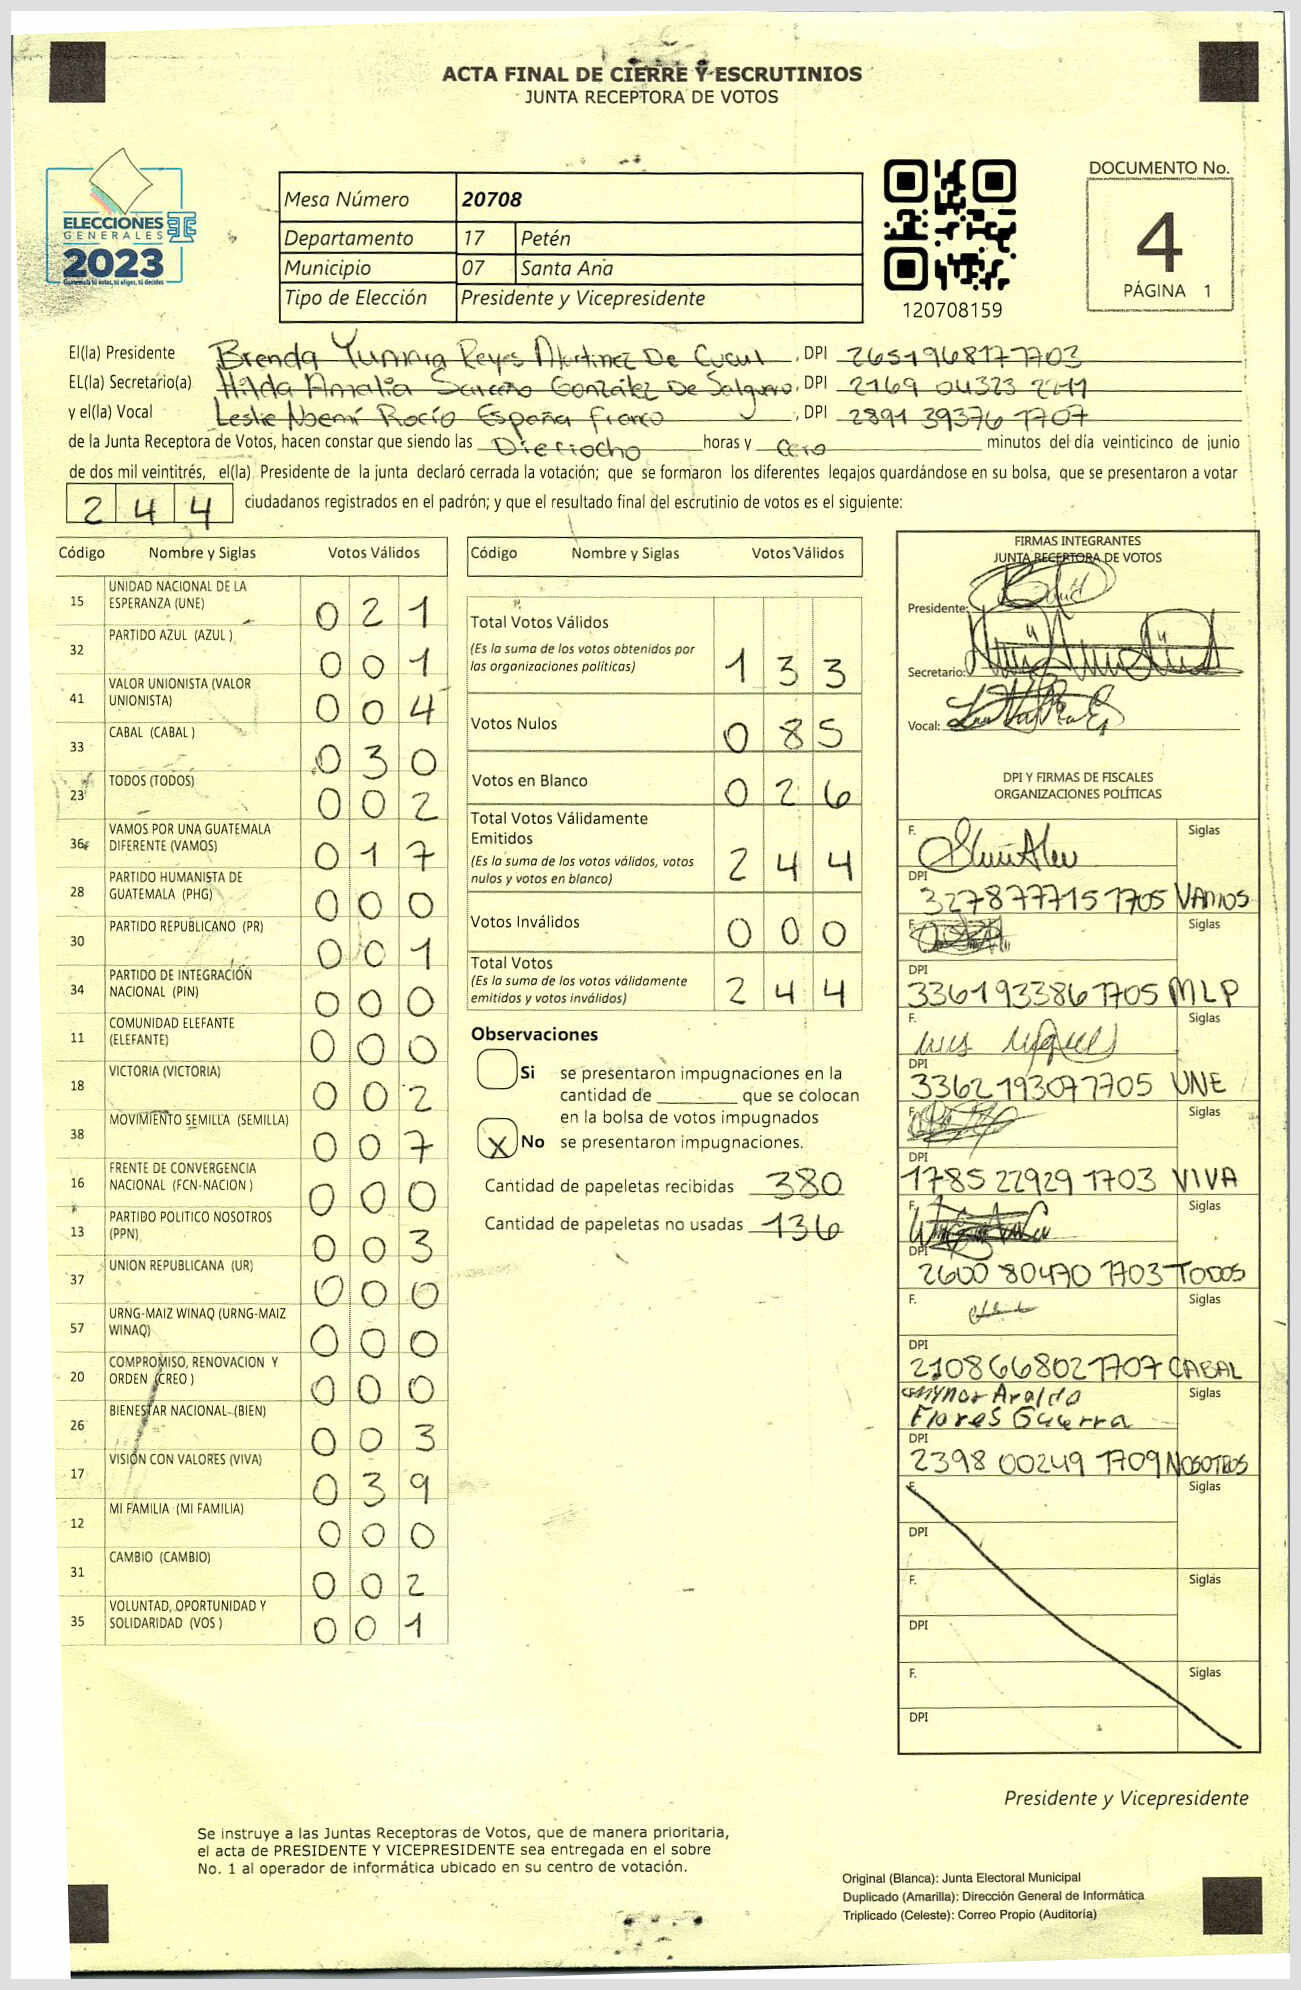 ACTA FINAL DE CIERRE Y ESCRUTINIOS
JUNTA RECEPTORA DE VOTOS
ELECCIONES
GENERALES
2023
Guatemala tú votas, tú eliges, tú decides
Mesa Número 20708
Departamento 17 Petén
Municipio 07 Santa Ana
Tipo de Elección Presidente y Vicepresidente
120708159
DOCUMENTO No.
4
PÁGINA 1
El(la) Presidente Brenda Reyes Martinez De Cucul, DPI 2651968171703
EL(la) Secretario(a) Hilda Amalia González De Salguero, DPI 2169 04323 2211
y el(la) Vocal Leslie Noemí Rocío España Franco, DPI 2891 39376 1707
de la Junta Receptora de Votos, hacen constar que siendo las Dieciocho horas y cero minutos del día veinticinco de junio
de dos mil veintitrés, el(la) Presidente de la junta declaró cerrada la votación; que se formaron los diferentes legajos guardándose en su bolsa, que se presentaron a votar
244 ciudadanos registrados en el padrón; y que el resultado final del escrutinio de votos es el siguiente:
Código Nombre y Siglas Votos Válidos
15 UNIDAD NACIONAL DE LA ESPERANZA (UNE) 021
32 PARTIDO AZUL (AZUL ) 001
41 VALOR UNIONISTA (VALOR UNIONISTA) 004
33 CABAL (CABAL ) 030
23 TODOS (TODOS) 002
36 VAMOS POR UNA GUATEMALA DIFERENTE (VAMOS) 017
28 PARTIDO HUMANISTA DE GUATEMALA (PHG) 000
30 PARTIDO REPUBLICANO (PR) 001
34 PARTIDO DE INTEGRACIÓN NACIONAL (PIN) 000
11 COMUNIDAD ELEFANTE (ELEFANTE) 000
18 VICTORIA (VICTORIA) 002
38 MOVIMIENTO SEMILLA (SEMILLA) 007
16 FRENTE DE CONVERGENCIA NACIONAL (FCN-NACION ) 000
13 PARTIDO POLITICO NOSOTROS (PPN) 003
37 UNION REPUBLICANA (UR) 000
57 URNG-MAIZ WINAQ (URNG-MAIZ WINAQ) 000
20 COMPROMISO, RENOVACION Y ORDEN (CREO ) 000
26 BIENESTAR NACIONAL (BIEN) 003
17 VISIÓN CON VALORES (VIVA) 039
12 MI FAMILIA (MI FAMILIA) 000
31 CAMBIO (CAMBIO) 002
35 VOLUNTAD, OPORTUNIDAD Y SOLIDARIDAD (VOS ) 001
Código Nombre y Siglas Votos Válidos
Total Votos Válidos 133
(Es la suma de los votos obtenidos por
las organizaciones políticas)
Votos Nulos 085
Votos en Blanco 026
Total Votos Válidamente
Emitidos 244
(Es la suma de los votos válidos, votos
nulos y votos en blanco)
Votos Inválidos 000
Total Votos 244
(Es la suma de los votos válidamente
emitidos y votos inválidos)
Observaciones
Si se presentaron impugnaciones en la
cantidad de ________ que se colocan
en la bolsa de votos impugnados
X No se presentaron impugnaciones.
Cantidad de papeletas recibidas 380
Cantidad de papeletas no usadas 136
FIRMAS INTEGRANTES
JUNTA RECEPTORA DE VOTOS
Presidente:
Secretario:
Vocal:
DPI Y FIRMAS DE FISCALES
ORGANIZACIONES POLÍTICAS
F. Siglas
DPI
3278777151705 VAMOS
F. Siglas
DPI
3361933861705 MLP
F. Luis Miguel Siglas
DPI
3362193077705 UNE
F. Siglas
DPI
1785 22929 1703 VIVA
F. Siglas
DPI
2600 80470 1703 TODOS
F. Siglas
DPI
2108668021707 CABAL
Mynor Araldo Siglas
Flores Guerra
DPI
2398 00249 1709 NOSOTROS
F. Siglas
DPI
F. Siglas
DPI
F. Siglas
DPI
Presidente y Vicepresidente
Se instruye a las Juntas Receptoras de Votos, que de manera prioritaria,
el acta de PRESIDENTE Y VICEPRESIDENTE sea entregada en el sobre
No. 1 al operador de informática ubicado en su centro de votación.
Original (Blanca): Junta Electoral Municipal
Duplicado (Amarilla): Dirección General de Informática
Triplicado (Celeste): Correo Propio (Auditoría)